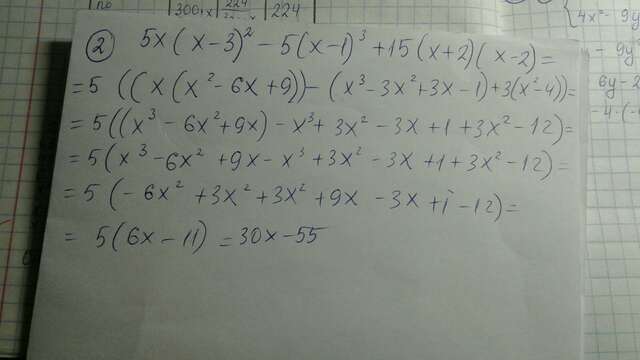 по 300 1x 224 224
② 5x(x-3)² - 5(x-1)³ + 15(x+2)(x-2) =
= 5((x(x² - 6x + 9)) - (x³ - 3x² + 3x - 1) + 3(x² - 4)) =
= 5((x³ - 6x² + 9x) - x³ + 3x² - 3x + 1 + 3x² - 12) =
= 5(x³ - 6x² + 9x - x³ + 3x² - 3x + 1 + 3x² - 12) =
= 5(-6x² + 3x² + 3x² + 9x - 3x + 1 - 12) =
= 5(6x - 11) = 30x - 55
4x² - 9y
- 9y
6y - 2
- 4 · (-